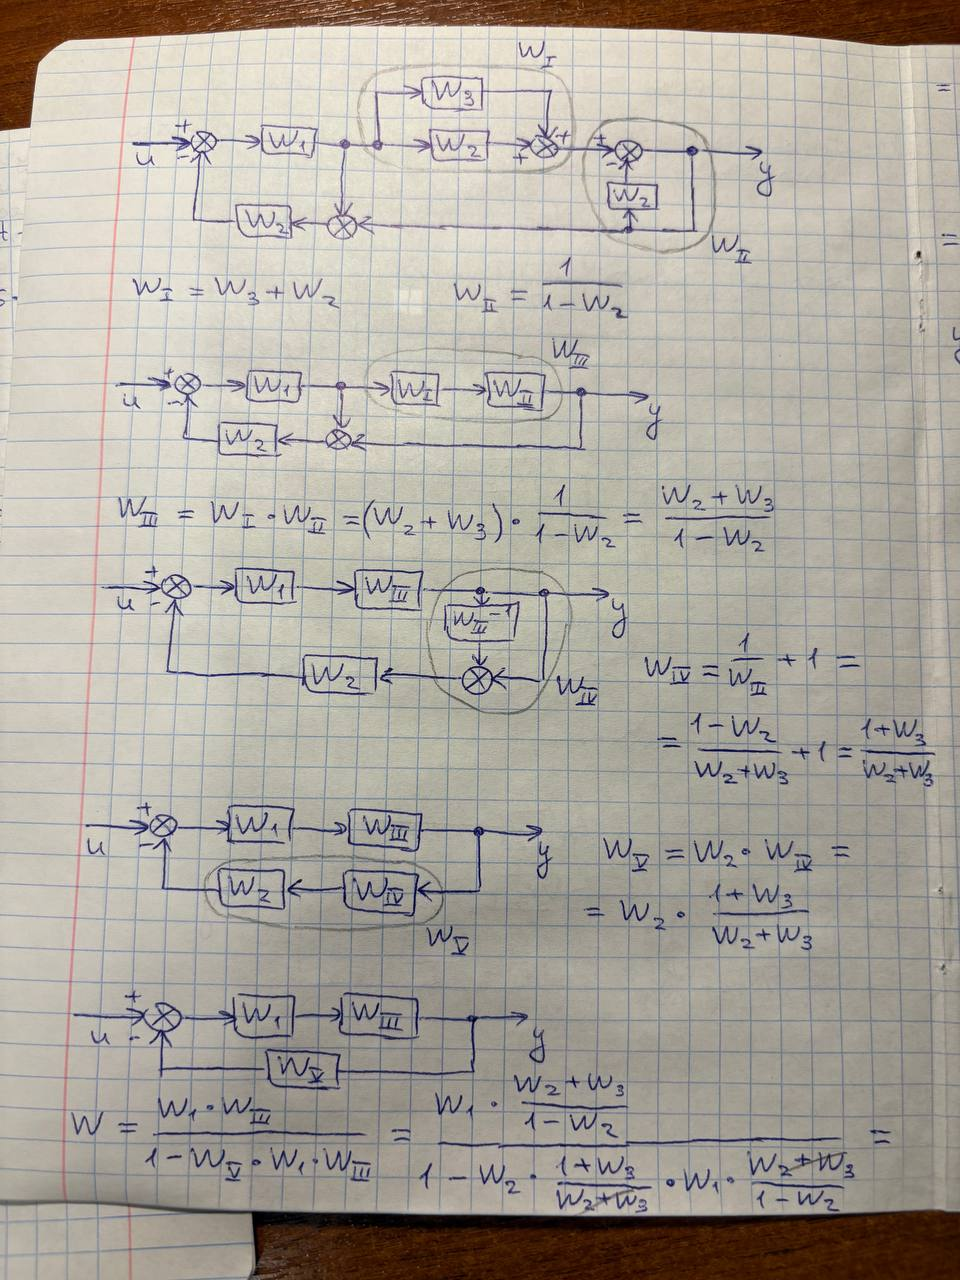 W_I
W₃
+ u - W₁ W₂ + + + - y
W₂ W₂
W_II
W_I = W₃ + W₂ W_II = 1/(1 - W₂)
W_III
+ u - W₁ W_I W_II y
W₂
W_III = W_I · W_II = (W₂ + W₃) · 1/(1 - W₂) = (W₂ + W₃)/(1 - W₂)
+ u - W₁ W_III y
W_III⁻¹
W₂ W_IV
W_IV = 1/W_II + 1 =
= (1 - W₂)/(W₂ + W₃) + 1 = (1 + W₃)/(W₂ + W₃)
+ u - W₁ W_III y
W₂ W_IV
W_V
W_V = W₂ · W_IV =
= W₂ · (1 + W₃)/(W₂ + W₃)
+ u - W₁ W_III y
W_V
W = (W₁ · W_III)/(1 - W_V · W₁ · W_III) = (W₁ · (W₂ + W₃)/(1 - W₂))/(1 - W₂ · (1 + W₃)/(W₂ + W₃) · W₁ · (W₂ + W₃)/(1 - W₂)) =